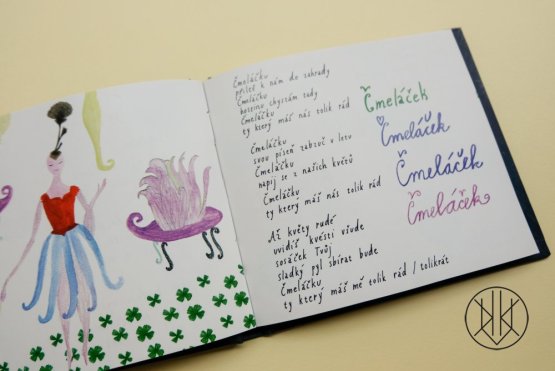 Čmeláčku
přileť k nám do zahrady
Čmeláčku
hostinu chystám tady
Čmeláčku
ty který máš nás tolik rád
Čmeláčku
svou píseň zabzuč v letu
Čmeláčku
napij se z našich květů
Čmeláčku
ty který máš nás tolik rád
Až květy rudé
uvidíš kvésti všude
sosáček Tvůj
sladký pyl sbírat bude
Čmeláčku
ty který máš mě tolik rád / tolikrát
Čmeláček
Čmeláček
Čmeláček
Čmeláček